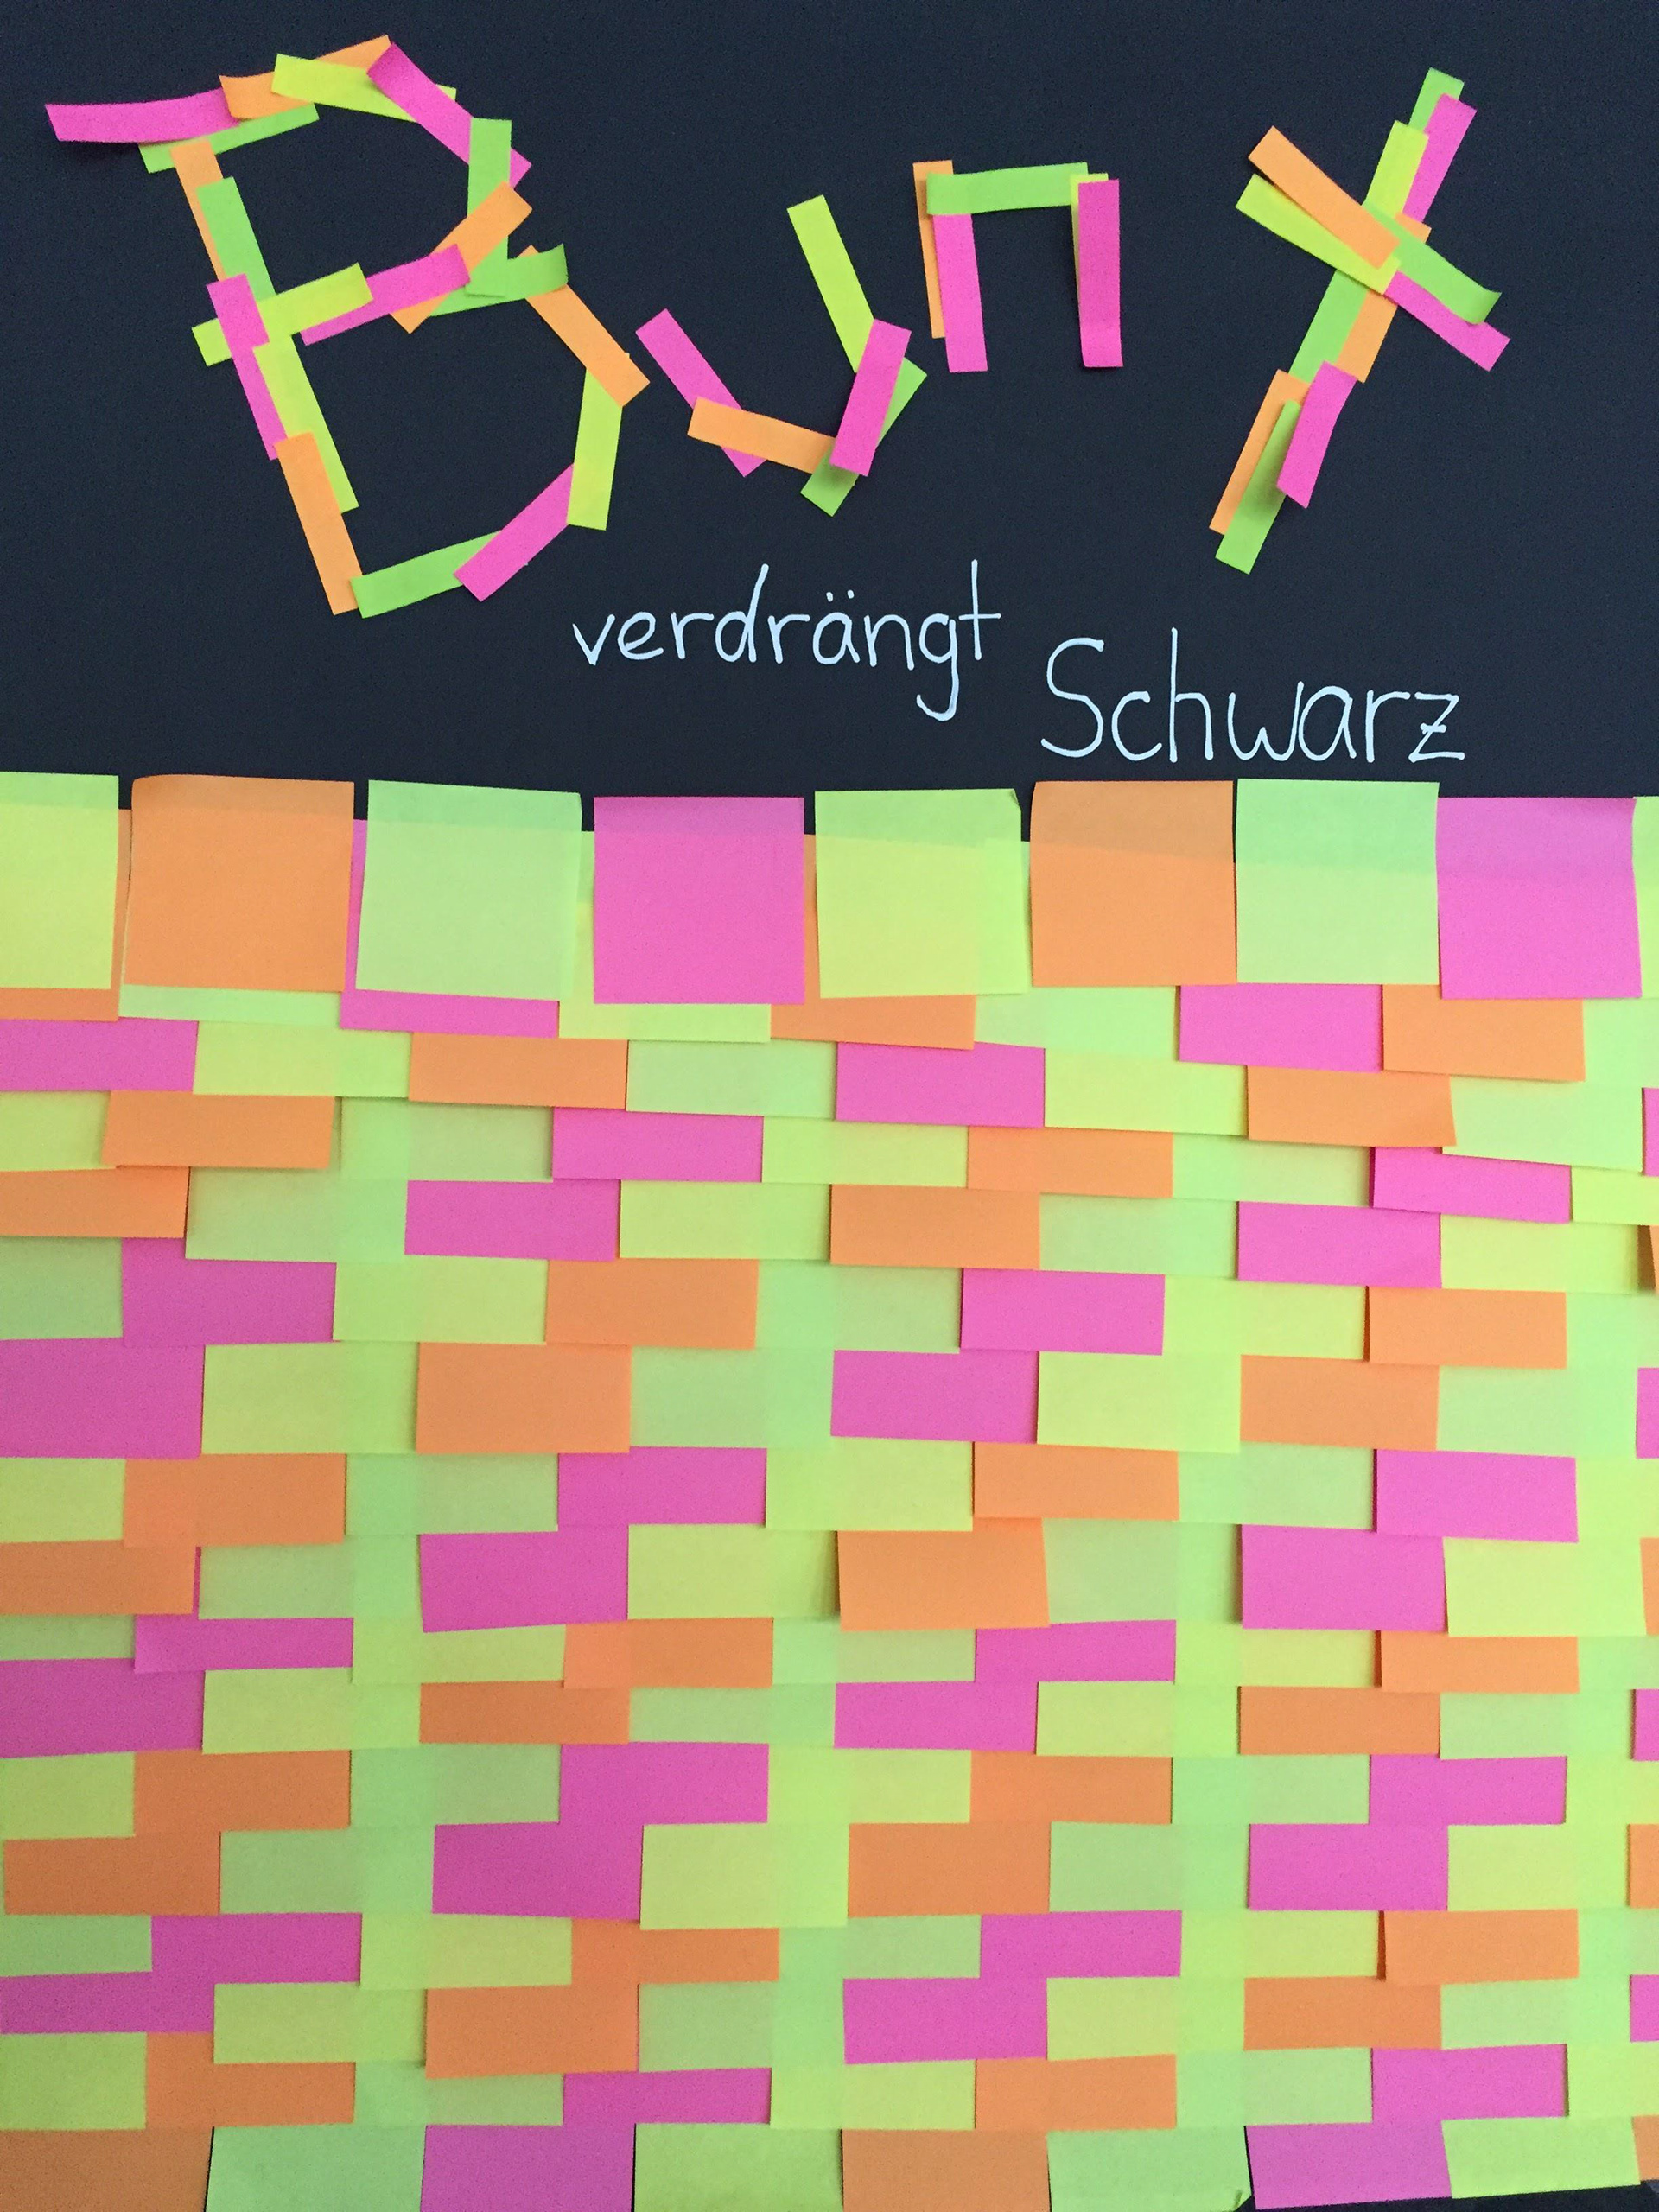 Bunt
verdrängt
Schwarz